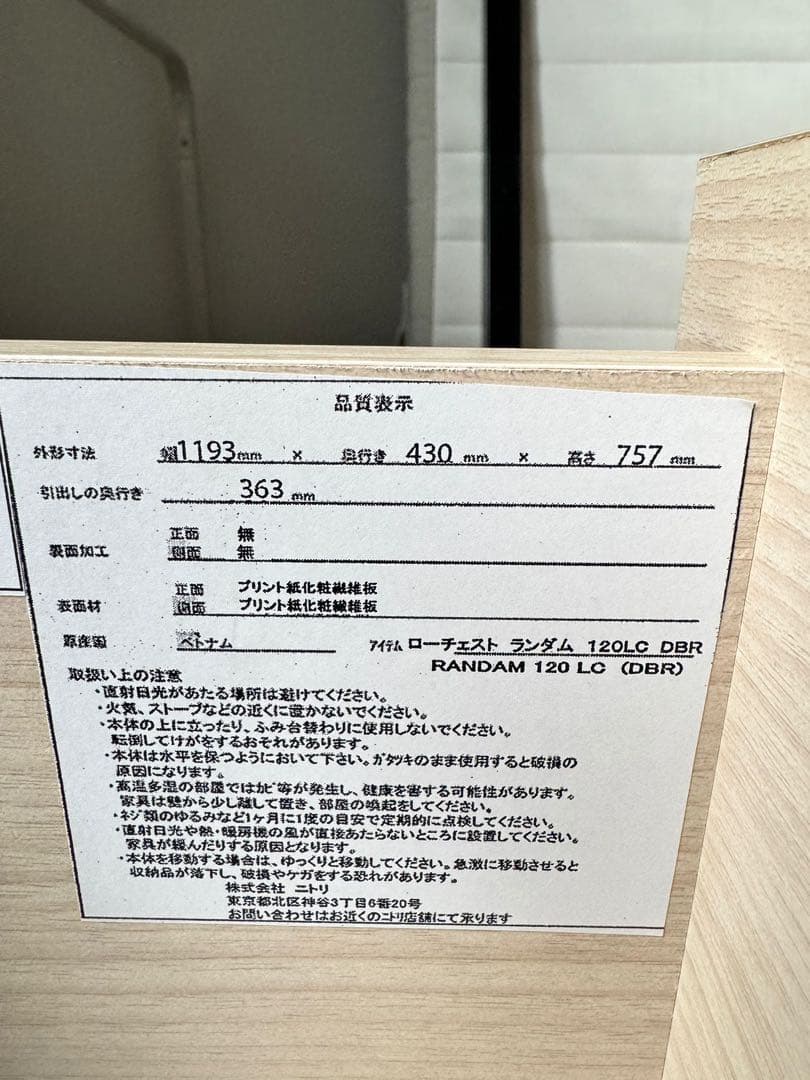 品質表示
外形寸法 幅1193mm × 奥行き 430 mm × 高さ 757 mm
引出しの奥行き 363 mm
表面加工 正面 無
側面 無
表面材 正面 プリント紙化粧繊維板
側面 プリント紙化粧繊維板
原産国 ベトナム アイテム ローチェスト ランダム 120LC DBR
RANDAM 120 LC (DBR)
取扱い上の注意
・直射日光があたる場所は避けてください。
・火気、ストーブなどの近くに置かないでください。
・本体の上に立ったり、ふみ台替わりに使用しないでください。
転倒してけがをするおそれがあります。
・本体は水平を保つようにおいて下さい。ガタツキのまま使用すると破損の
原因になります。
・高温多湿の部屋ではカビ等が発生し、健康を害する可能性があります。
家具は壁から少し離して置き、部屋の喚起をしてください。
・ネジ類のゆるみなど1ヶ月に1度の目安で定期的に点検してください。
・直射日光や熱・暖房機の風が直接あたらないところに設置してください。
家具が緩んだりする原因となります。
・本体を移動する場合は、ゆっくりと移動してください。急激に移動させると
収納品が落下し、破損やケガをする恐れがあります。
株式会社 ニトリ
東京都北区神谷3丁目6番20号
お問い合わせはお近くのニトリ店舗にて承ります